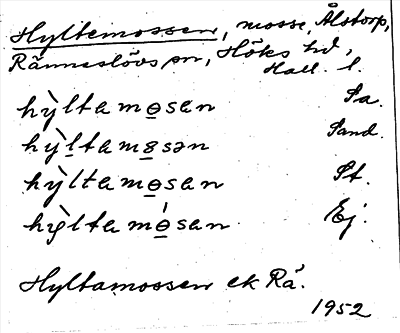 Hyltemossen, mosse, Ålstorp,
Ränneslövs sn, Höks hd,
Hall. l.
hỳltamo̲san Sa.
hỳl̲tamo̲sən Sand.
hỳltamo̲san St.
hỳltamó̲san Ej.
Hyltamossen ek Rä.
1952